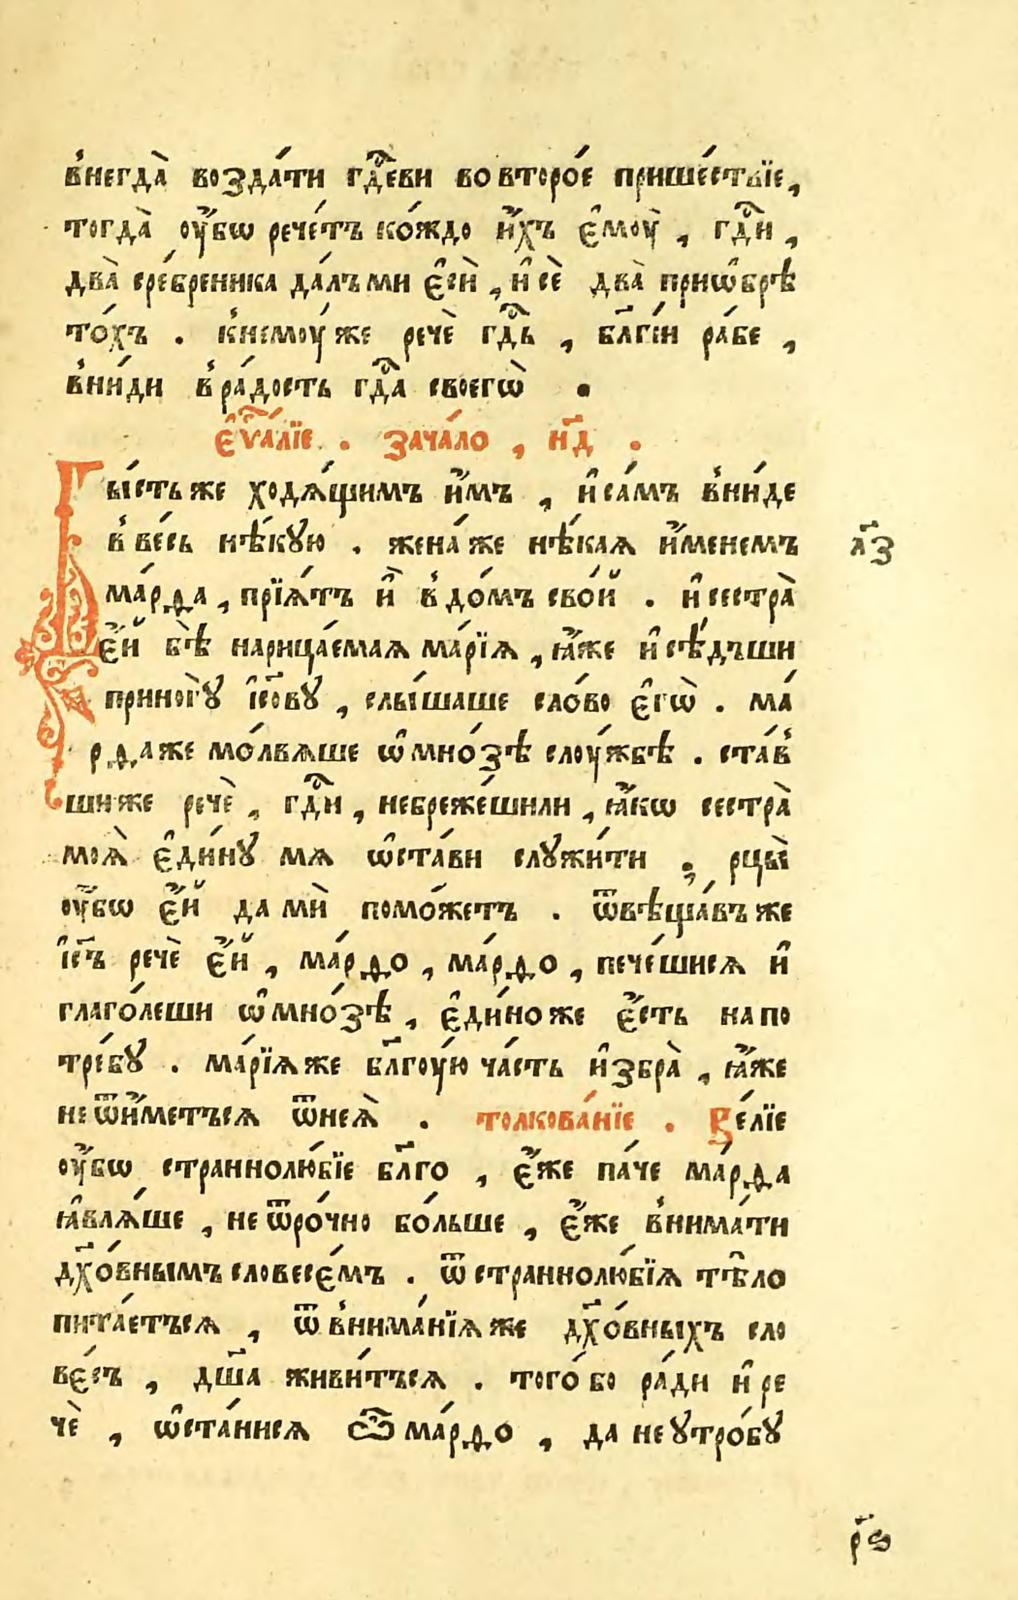 в̓негда̀ возда́ти гдⷭ҇еви вовторо́е прише́ствїе,
тогда̀ ᲂу҆́бѡ рече́тъ ко́ждо и҆́хъ є҆моу̀, гдⷭ҇и,
два̀ сре́бреника да́лъми є҆сѝ, и҆сѐ два̀ приѡ҆брѣ
то́хъ. к̓немоу́же речѐ гдⷭ҇ь, бл҃гі́и ра́бе,
в̓ни́ди в̓ра́дость гдⷭ҇а своегѡ̀.
є҆ѵⷢ҇а́лїе. зача́ло, н҃д.
Бы́стьже ходѧ́щимъ и҆́мъ, и҆са́мъ в̓ни́де
в̓ве́сь нѣ́кꙋю. жена́же нѣ́каѧ и҆́менемъ
ма́рѳа, прїѧ́тъ и҆̀ в̓до́мъ сво́й. и҆сестра̀
є҆́й бѣ̀ нарица́емаѧ марі́ѧ, ꙗ҆́же и҆сѣ́дъши
приногꙋ̀ і҆сⷭ҇овꙋ, слы́шаше сло́во є҆гѡ̀. ма́
рѳаже мо́лвѧше ѡ҆мно́зѣ слоу́жбѣ. ста́в̓
шиже речѐ, гдⷭ҇и, небреже́шили, ꙗ҆́кѡ сестра̀
моѧ̀ є҆ди́нꙋ мѧ ѡ҆ста́ви слꙋжи́ти, рцы̀
ᲂу҆́бѡ є҆́й дами̇̀ помо́жетъ. ѿвѣща́въже
і҆с҃ъ речѐ є҆́й, ма́рѳо, ма́рѳо, пече́шисѧ и҆̀
глаго́леши ѡ҆мно́зѣ, є҆ди́ноже є҆́сть напо
тре́бꙋ. марі́ѧже бл҃гоу́ю ча́сть и҆збра̀, ꙗ҆́же
неѿи҆́метъсѧ ѿнеѧ̀. толкова́нїе. Ве́лїе
ᲂу҆́бѡ страннолю́бїе бл҃го, є҆́же па́че ма́рѳа
ꙗ҆влѧ́ше, неѿро́чно бо́льше, є҆́же в̓нима́ти
дх҃о́внымъ словесє́мъ. ѿстраннолю́бїѧ тѣ̑ло
пита́етъсѧ, ѿв̓нима́нїѧже дх҃о́вныхъ сло
ве́съ, дш҃а живи́тъсѧ. того́бо ра́ди и҆ре
чѐ, ѡ҆ста́нисѧ ѽма́рѳо, данеꙋтро́бꙋ
л҃з
р҃ѕ